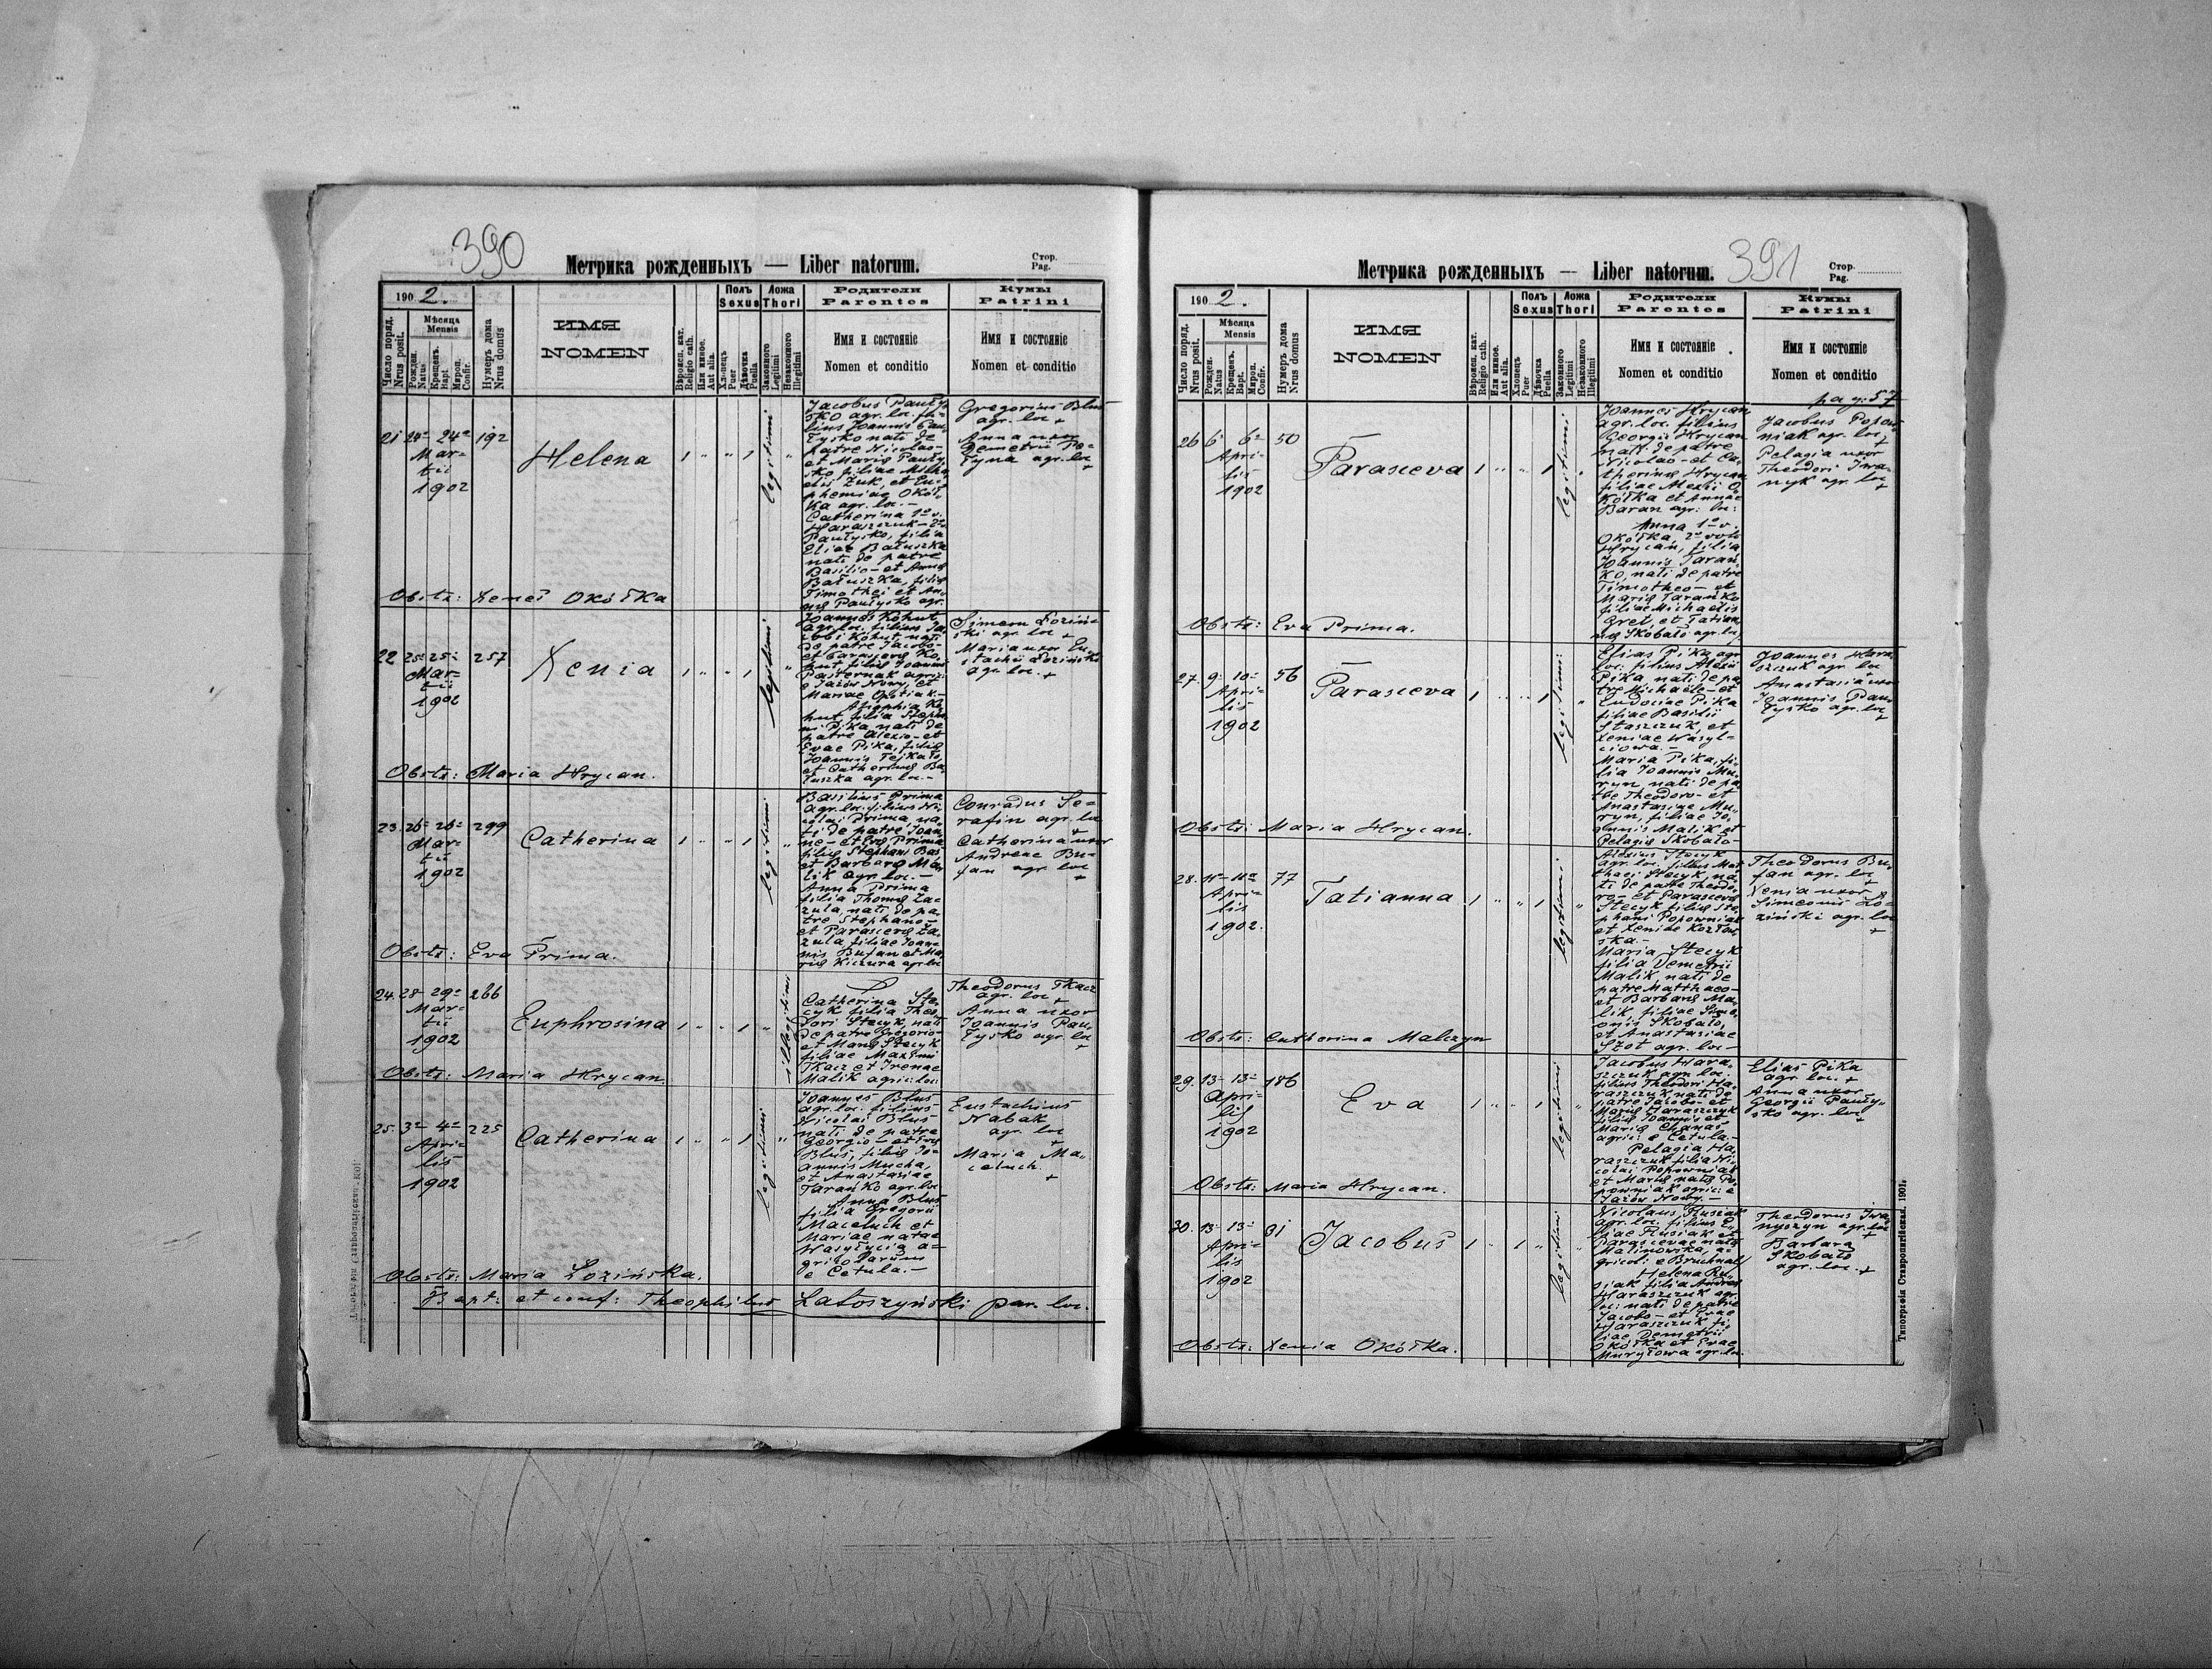 390
Метрика рожденныхъ — Liber natorum.
Стор.
Pag.
1902.
Число поряд.
Nrus posit.
Мѣсяца
Mensis
Рожден.
Natus
Крещенъ.
Bapt.
Мѵроп.
Confir.
Нумеръ дома
Nrus domus
ИМЯ
NOMEN
Вѣроисп. кат.
Religio cath.
Или инное.
Aut alia.
Полъ
Sexus
Хлопецъ
Puer
Дѣвочка
Puella
Ложа
Thori
Законного
Legitimi
Незаконного
Illegitimi
Родители
Parentes
Имя и состояніе
Nomen et conditio
Кумы
Patrini
Имя и состояніе
Nomen et conditio
21 24 24 192
Martii
1902
Helena
legitimi
Jacobus Pauły-
sko agr. loc. fi-
lius Joannis Pau-
łysko nati de
patre Nicolao-
et Maria Pauły-
sko filiae
Żuk, et Eu-
phemiae Okół-
ka agr. loc.-
Catherina 1º v.
Haraszczuk - 2º
Paułysko, filia
Eliae Bałuszka
nati de patre
Basilio - et Anna
Bałuszka, filia
Timothei et An-
na Paułysko agr.
Gregorius Blus
agr. loc +
Anna uxor
Demetrii
agr. loc
+
Obstr: Okółka
22 25 25 257
Martii
1902
Xenia
legitimi
Joannes Kohut
agr. loc. filius Ja-
cobi Kohut, nati
de patre Jacobo-
et Parasceva Ko-
hut, filia Joannis
Pasternak agric:
e Jażów Nowy, et
Mariae
Ko-
hut, filia Stepha-
ni Pika, nati de
patre Alexio - et
Evae Pika, filia
Joannis
et Catherina Ba-
łuszka agr. loc.-
Simeon Łoziń-
ski agr. loc +
Maria uxor Eu-
stachii Łoziński
agr. loc. +
Obstr: Maria Hrycan.
23. 26 26 299
Martii
1902
Catherina
legitimi
Basilius Prima
agr. loc. filius Ni-
colai Prima, na-
ti de patre Joan-
ne - et Eva Prima
filia Stephani
et Barbara Ma-
lik agr. loc.-
Anna Prima
filia Thoma Ła-
zula, nati de pa-
tre Stephano-
et Parasceva Ła-
zula, filiae Joan-
nis Bufan et Ma-
ria Kiczura agr loc
Conradus Se-
rafin agr. loc
+
Catherina uxor
Andreae Bu-
fan agr loc
+
Obstr: Eva Prima.
24. 28 29 266
Martii
1902
Euphrosina
illegitimi
Catherina Ste-
cyk filia Theo-
dori Stecyk, nati
de patre Gregorio-
et Maria Stecyk
filiae Maximi
Tkacz et Irenae
Malik agric: loc:
Theodorus Tkacz
agr. loc +
Anna uxor
Joannis Pau-
łysko agr. loc
+
Obstr: Maria Hrycan.
25. 3 4 225
Aprilis
1902
Catherina
legitimi
Joannes Blus
agr. loc. filius
Nicolai Blus
nati de patre
Georgio - et Eva
Blus, filia Jo-
annis Mucha,
et Anastasiae
Tarańko agr. loc
Anna Blus
filia Gregorii
Maceluch et
Mariae natae
a-
gricolarum
e Cetula.-
Eustachius
Nabak
agr. loc
+
Maria Ma-
celuch.
+
Obstr: Maria Łozińska.
Bapt: et conf: Theophilus Łatoszyński par. loc.
391
Метрика рожденныхъ — Liber natorum.
Стор.
Pag.
1902.
Число поряд.
Nrus posit.
Мѣсяца
Mensis
Рожден.
Natus
Крещенъ.
Bapt.
Мѵроп.
Confir.
Нумеръ дома
Nrus domus
ИМЯ
NOMEN
Вѣроисп. кат.
Religio cath.
Или инное.
Aut alia.
Полъ
Sexus
Хлопецъ
Puer
Дѣвочка
Puella
Ложа
Thori
Законного
Legitimi
Незаконного
Illegitimi
Родители
Parentes
Имя и состояніе
Nomen et conditio
Кумы
Patrini
Имя и состояніе
Nomen et conditio
pag: 57
26 6 6 50
Aprilis
1902
Parasceva
legitimi
Joannes Hrycan
agr. loc. filius
Georgii Hrycan
nati de patre
Nicolao - et Ca-
therina Hrycan
filiae Alexii O-
kółka et Annae
Baran agr: loc:
Anna 1º v.
Okółka, 2º voto
Hrycan, filia
Joannis Tarań-
ko, nati de patre
Timotheo - et
Maria Tarańko
filiae Michaelis
Gret, et Tatian-
na Skobało agr. loc
Jacobus Popow-
niak agr. loc
+
Pelagia uxor
Theodori Iwa-
nyk agr. loc
+
Obstr: Eva Prima.
27. 9 10 56
Aprilis
1902
Parasceva
legitimi
Elias Pika agr
loc. filius Alexii
Pika nati de pa-
tre Michaele - et
Eudociae Pika
filiae Basilii
Staszczuk, et
Xeniae Wasyl-
ciowa.-
Maria Pika, fi-
lia Joannis Mu-
ryn, nati de pa-
tre Theodoro - et
Anastasiae Mu-
ryn, filiae Jo-
annis Malik et
Pelagia Skobało-
Joannes Hara-
szczuk agr. loc
+
Anastasia uxor
Joannis Pau-
łysko agr. loc
+
Obstr: Maria Hrycan.
28. 11 11 77
Aprilis
1902.
Tatianna
legitimi
Alexius Stecyk
agr. loc. filius Mat-
thaei Stecyk, na-
ti de patre Theodo-
ro - et Parasceva
Stecyk filia Ste-
phani Popowniak
et Xeniae Kozłow-
ska.-
Maria Stecyk
filia Demetrii
Malik, nati de
patre Matthaeo-
et Barbara Ma-
lik, filiae Sime-
onis Skobało,
et Anastasiae
Szot agr. loc-
Theodorus Bu-
fan agr. loc
+
Xenia uxor
Simeonis Ło-
ziński agr. loc
+
Obstr: Catherina Malczyn
29. 13 13 186
Aprilis
1902
Eva
legitimi
Jacobus Hara-
szczuk agr. loc.
filius Theodori Ha-
raszczuk, nati de
patre Jacobo - et
Maria Haraszczuk
filia Joannis et
Maria Chanas
agric: e Cetula.-
Pelagia Ha-
raszczuk filia Ni-
colai Popowniak
et Maria nata Po-
powniak agric: e
Jażów Nowy.-
Elias Pika
agr. loc. +
Anna uxor
Georgii Pauły-
sko agr. loc
+
Obstr: Maria Hrycan.
30. 13 13 31
Aprilis
1902
Jacobus
legitimi
Nicolaus Rusiak
agr. loc. filius E-
liae Rusiak et
Parascevae nata
Malinowska, a-
gricol: e Bruchnal
Helena Ru-
siak filia Andreae
Haraszczuk agr.
loc: nati de patre
Jacobo - et Evae
Haraszczuk fi-
liae Demetrii
Okółka et Evae
Muryłowa agr. loc.
Theodorus Iwa-
nyszyn agr. loc
+
Barbara
Skobało
agr. loc. +
Obstr: Xenia Okółka.
Типографія Ставропигійская. 1901.